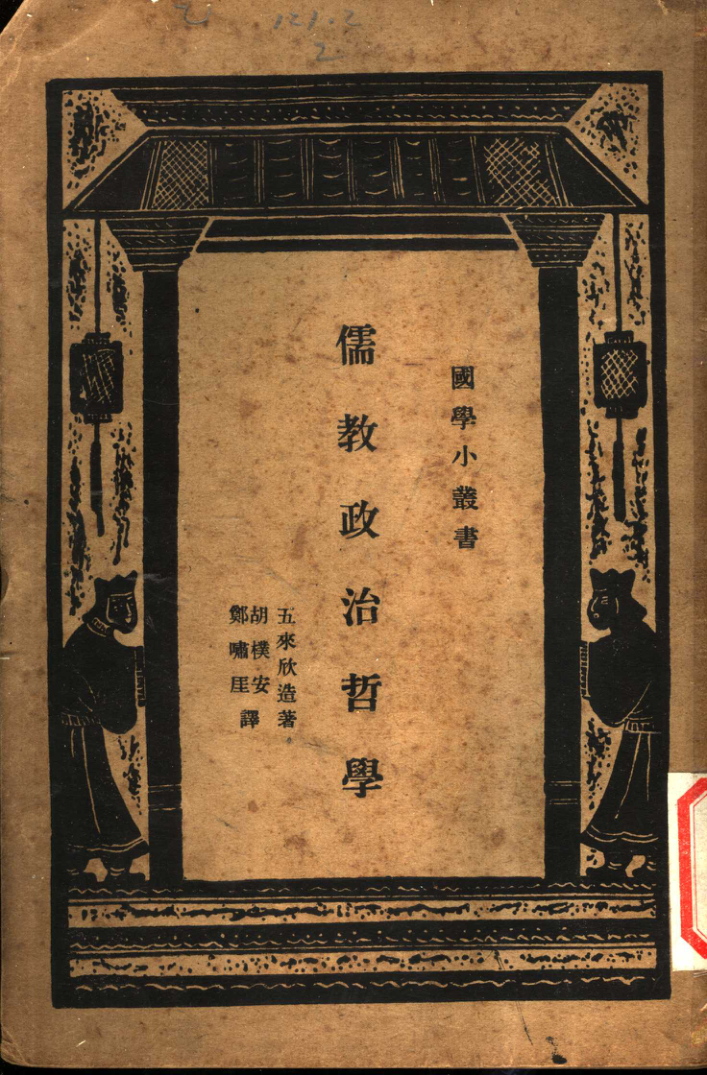 國學小叢書
儒教政治哲學
五來欣造著
胡樸安
鄭嘯厓
譯
121.2
2